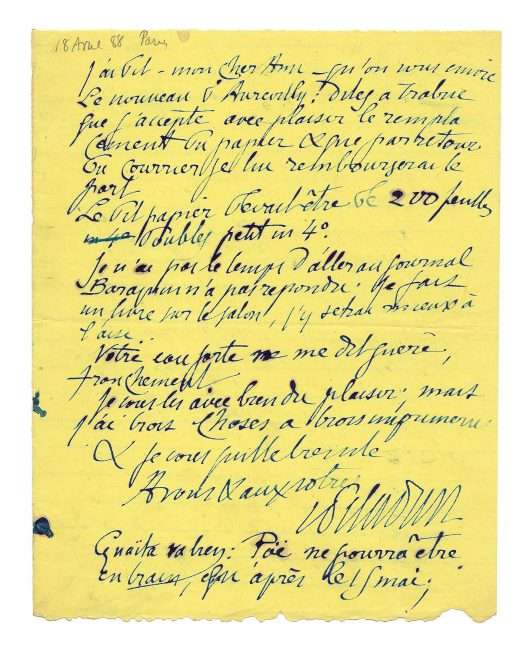 18 Avril 88 Paris
J'ai dit - mon cher Ami - qu'on vous envoie
Le nouveau d'Aurevilly! Dites a
que j'accepte avec plaisir le rempla
cement du papier & que par retour
du courrier je lui rembourserai le
port
Le dit papier devait être de 200 feuilles
in 4° doubles petit in 4°.
Je n'ai pas le temps d'aller au journal
n'a pas repondu. Je fais
un livre sur le salon, j'y serai mieux à
l'aise..
Votre me dit guère,
franchement
Je vous lis avec bien du plaisir; mais
j'ai trois choses a trois imprimeurs
& je vous quitte bien vite
A vous & aux votres
Péladan
Guaita va bien: Poë ne pourra être
en train, qu'après le 15 mai;